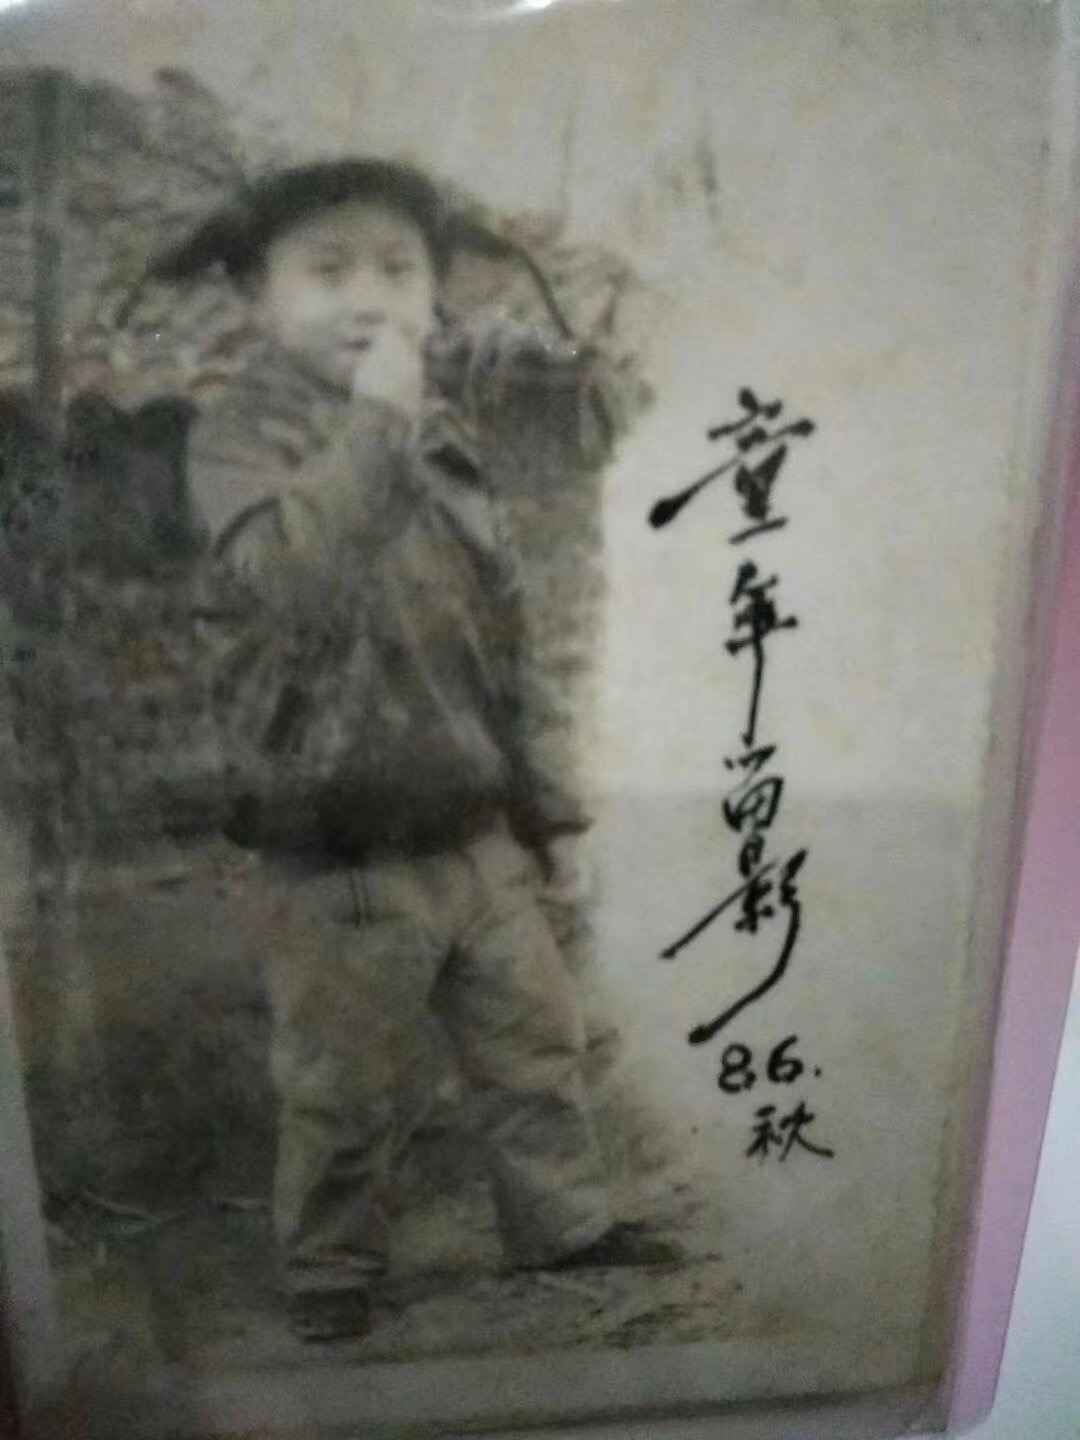 童年留影
86.
秋